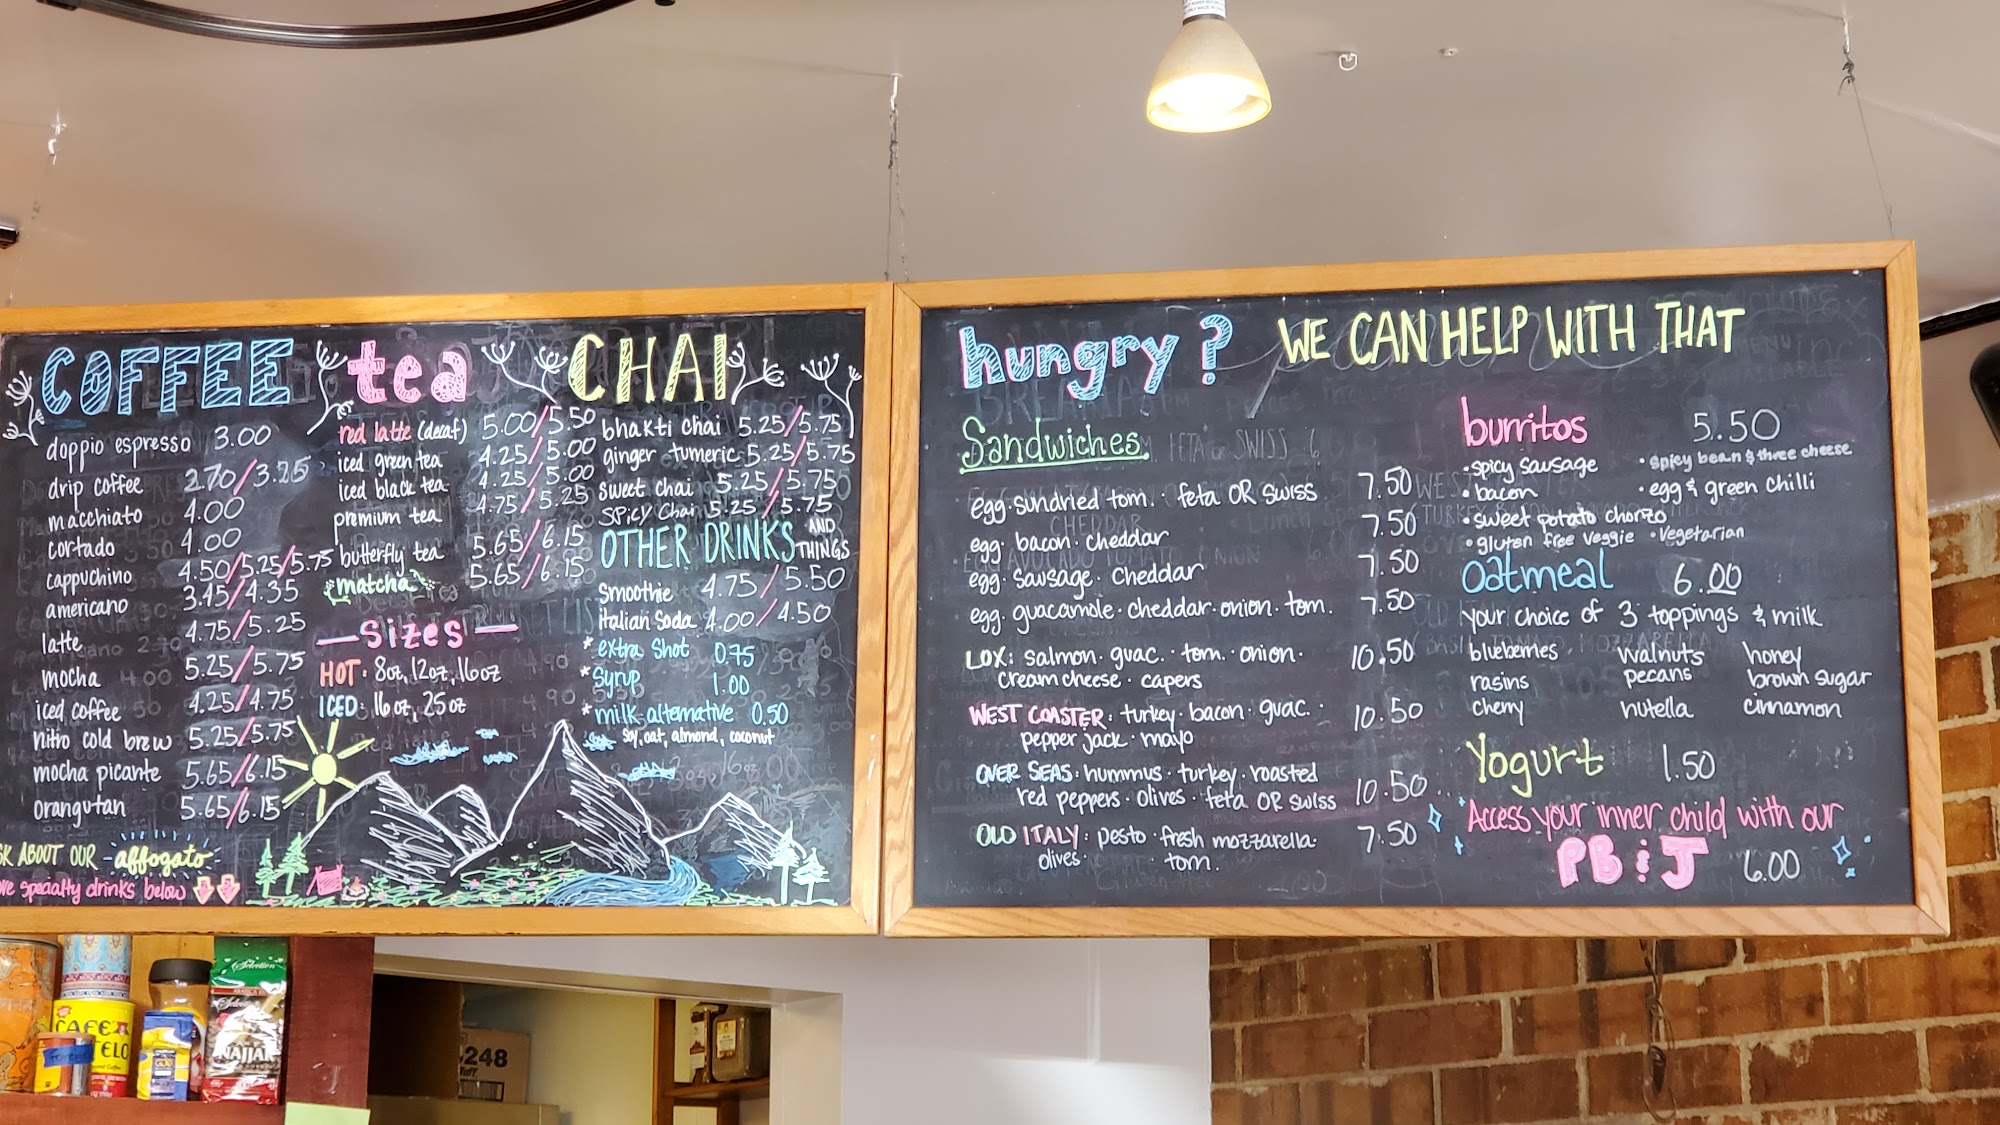 COFFEE tea CHAI
doppio espresso 3.00
drip coffee 2.70/3.25
macchiato 4.00
cortado 4.00
cappuchino 4.50/5.25/5.75
americano 3.45/4.35
latte 4.75/5.25
mocha 5.25/5.75
iced coffee 4.25/4.75
nitro cold brew 5.25/5.75
mocha picante 5.65/6.15
orangutan 5.65/6.15
SK ABOUT OUR affogato
ore specialty drinks below
red latte (decaf) 5.00/5.50
iced green tea 4.25/5.00
iced black tea 4.25/5.00
premium tea 4.75/5.25
butterfly tea 5.65/6.15
matcha 5.65/6.15
Sizes
HOT: 8oz, 12oz, 16oz
ICED: 16oz, 25oz
bhakti chai 5.25/5.75
ginger tumeric 5.25/5.75
sweet chai 5.25/5.75
spicy chai 5.25/5.75
OTHER DRINKS AND THINGS
Smoothie 4.75/5.50
italian Soda 4.00/4.50
*extra shot 0.75
*Syrup 1.00
*milk alternative 0.50
soy, oat, almond, coconut
hungry? WE CAN HELP WITH THAT
Sandwiches
egg · sundried tom. · feta OR swiss 7.50
egg · bacon · cheddar 7.50
egg · sausage · cheddar 7.50
egg · guacamole · cheddar · onion · tom. 7.50
LOX: salmon · guac. · tom. · onion · 10.50
cream cheese · capers
WEST COASTER: turkey · bacon · guac. · 10.50
pepper jack · mayo
OVER SEAS · hummus · turkey · roasted
red peppers · olives · feta OR swiss 10.50
OLD ITALY: pesto · fresh mozzarella · 7.50
olives · tom.
burritos 5.50
· spicy sausage · spicy bean & three cheese
· bacon · egg & green chilli
· sweet potato chorizo
· gluten free veggie · vegetarian
oatmeal 6.00
your choice of 3 toppings & milk
blueberries walnuts honey
rasins pecans brown sugar
cherry nutella cinnamon
Yogurt 1.50
Access your inner child with our
PB & J 6.00
CAFE
TELO
Selection
NAJJAR
248